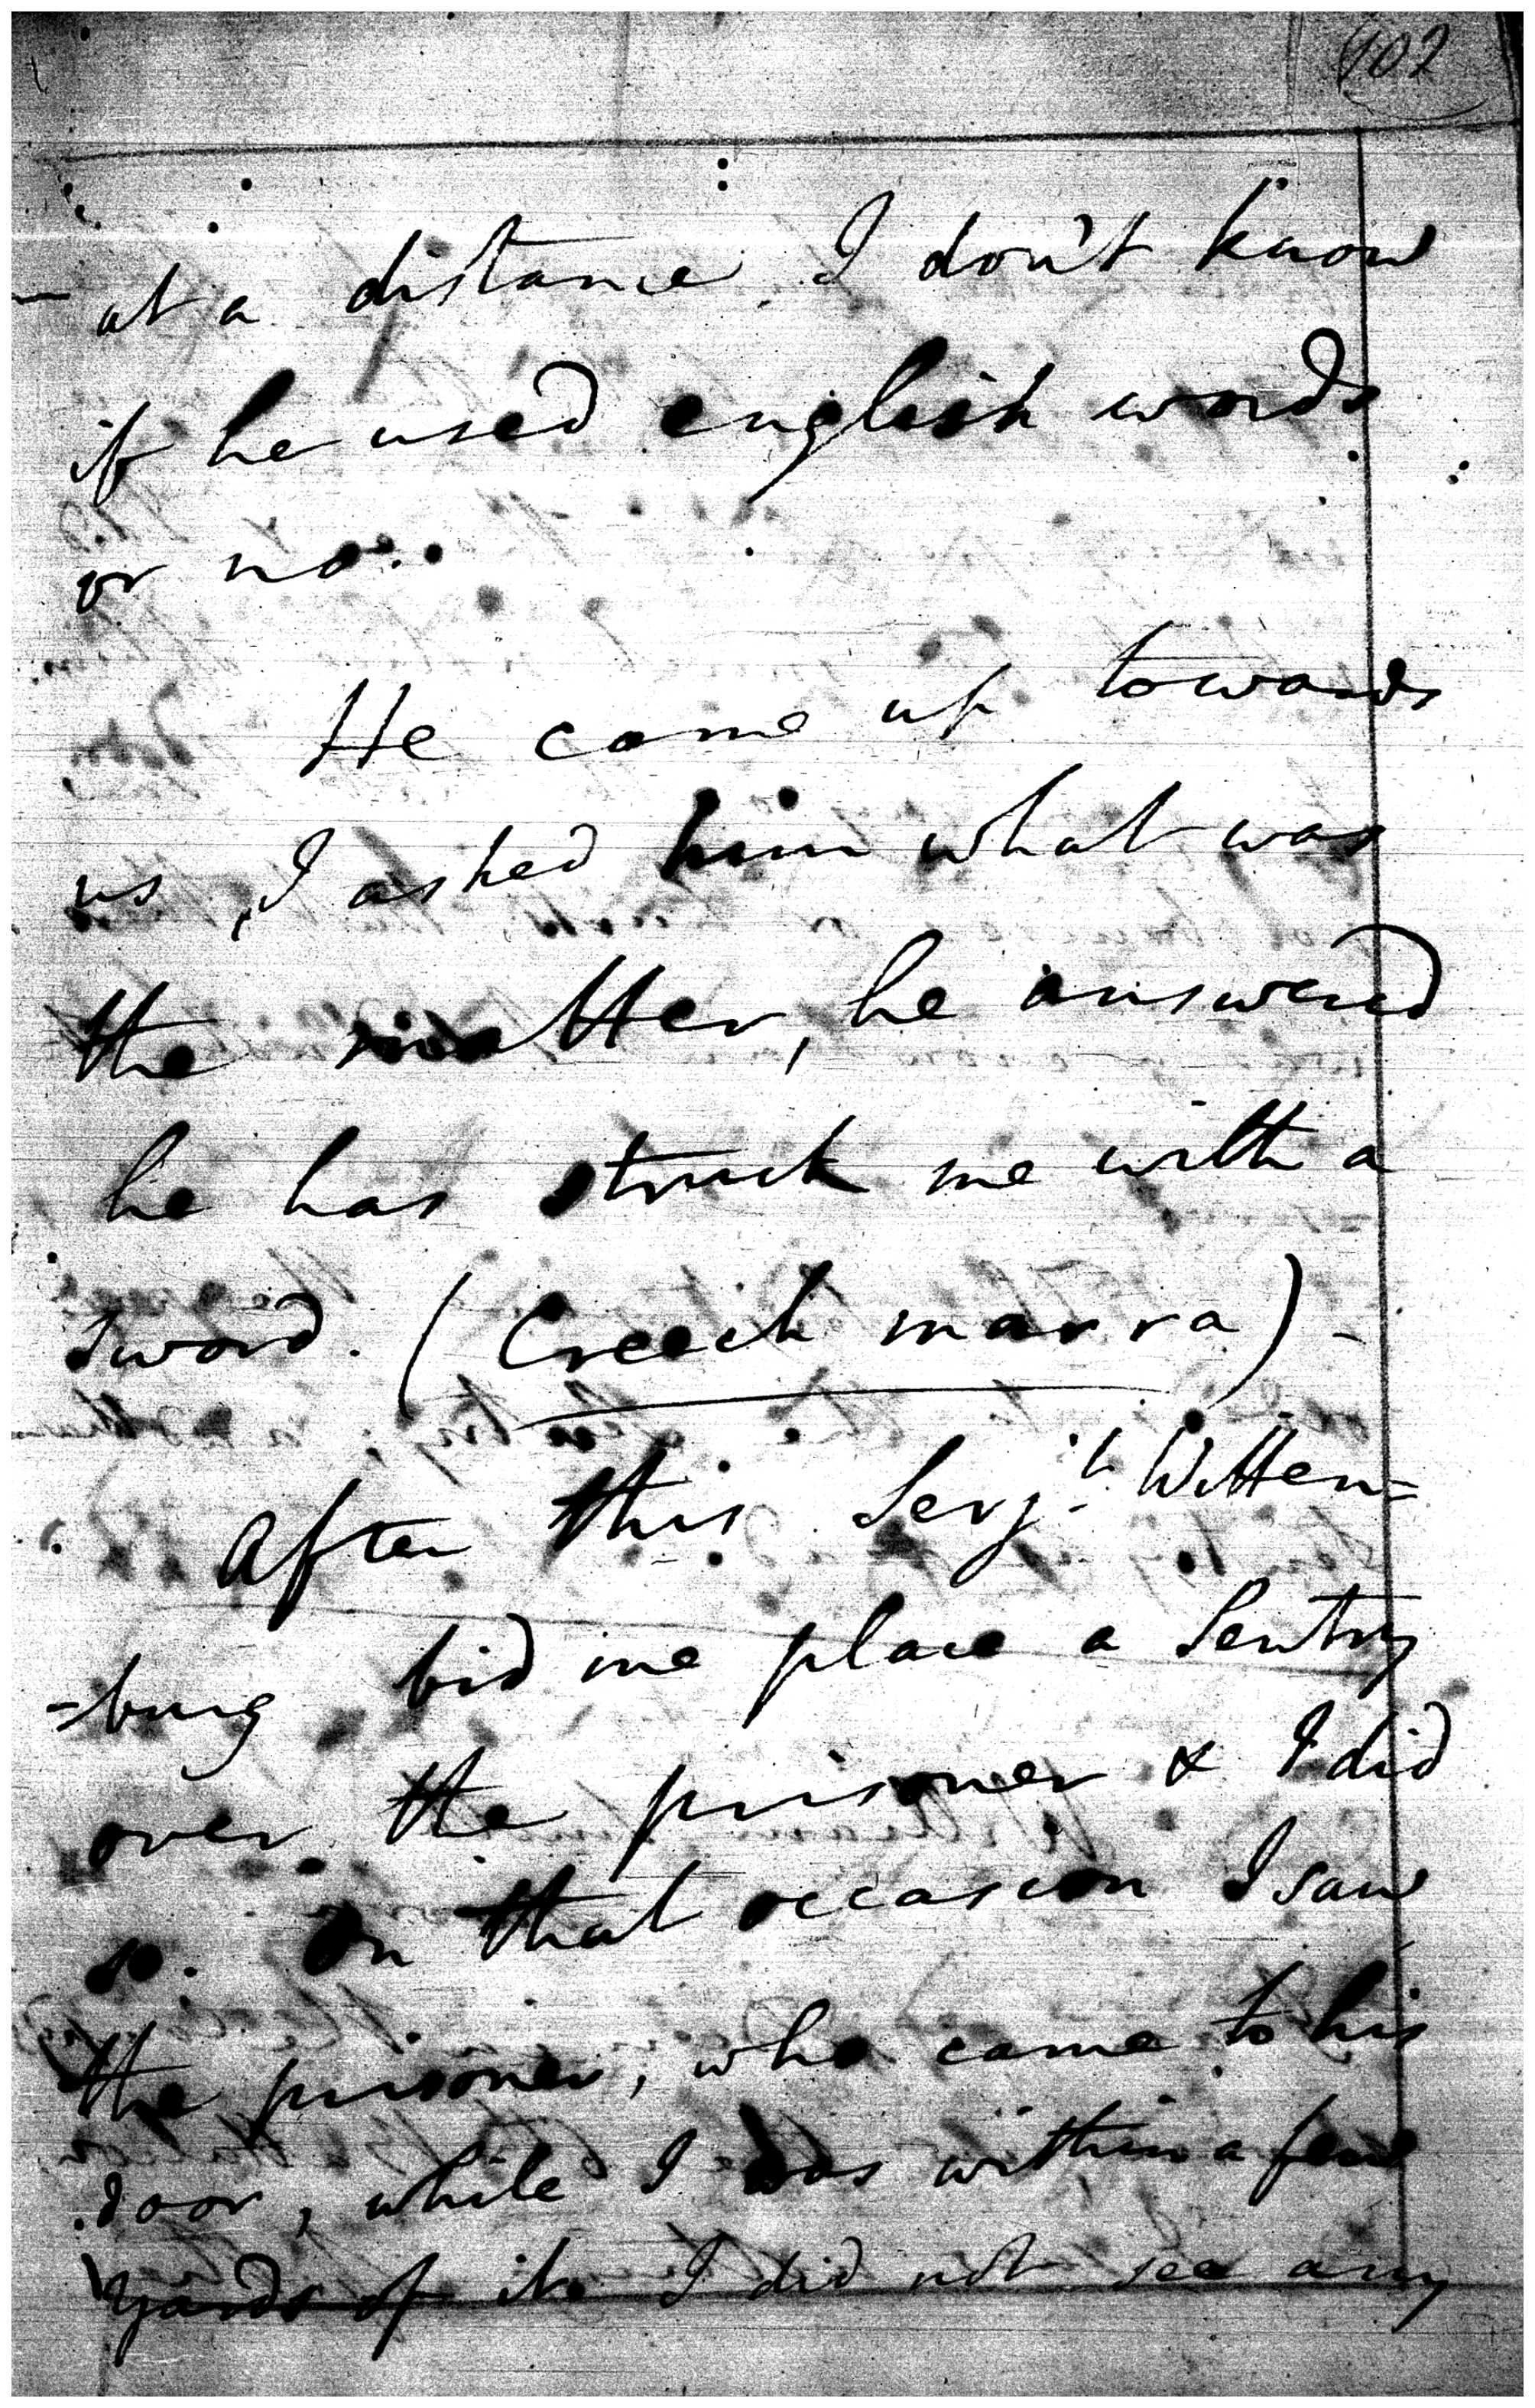 102
at a distance. I don't know
if he used english words
or no.
He came up towards
us, I asked him what was
the matter, he answered
he has struck me with a
sword. (Creech marra) -
After this Serjt. Witten=
=burg bid me place a Sentry
over the prisoner & I did
so. On that occasion I saw
the prisoner, who came to his
door, while I was within a few
yards of it. I did not see any